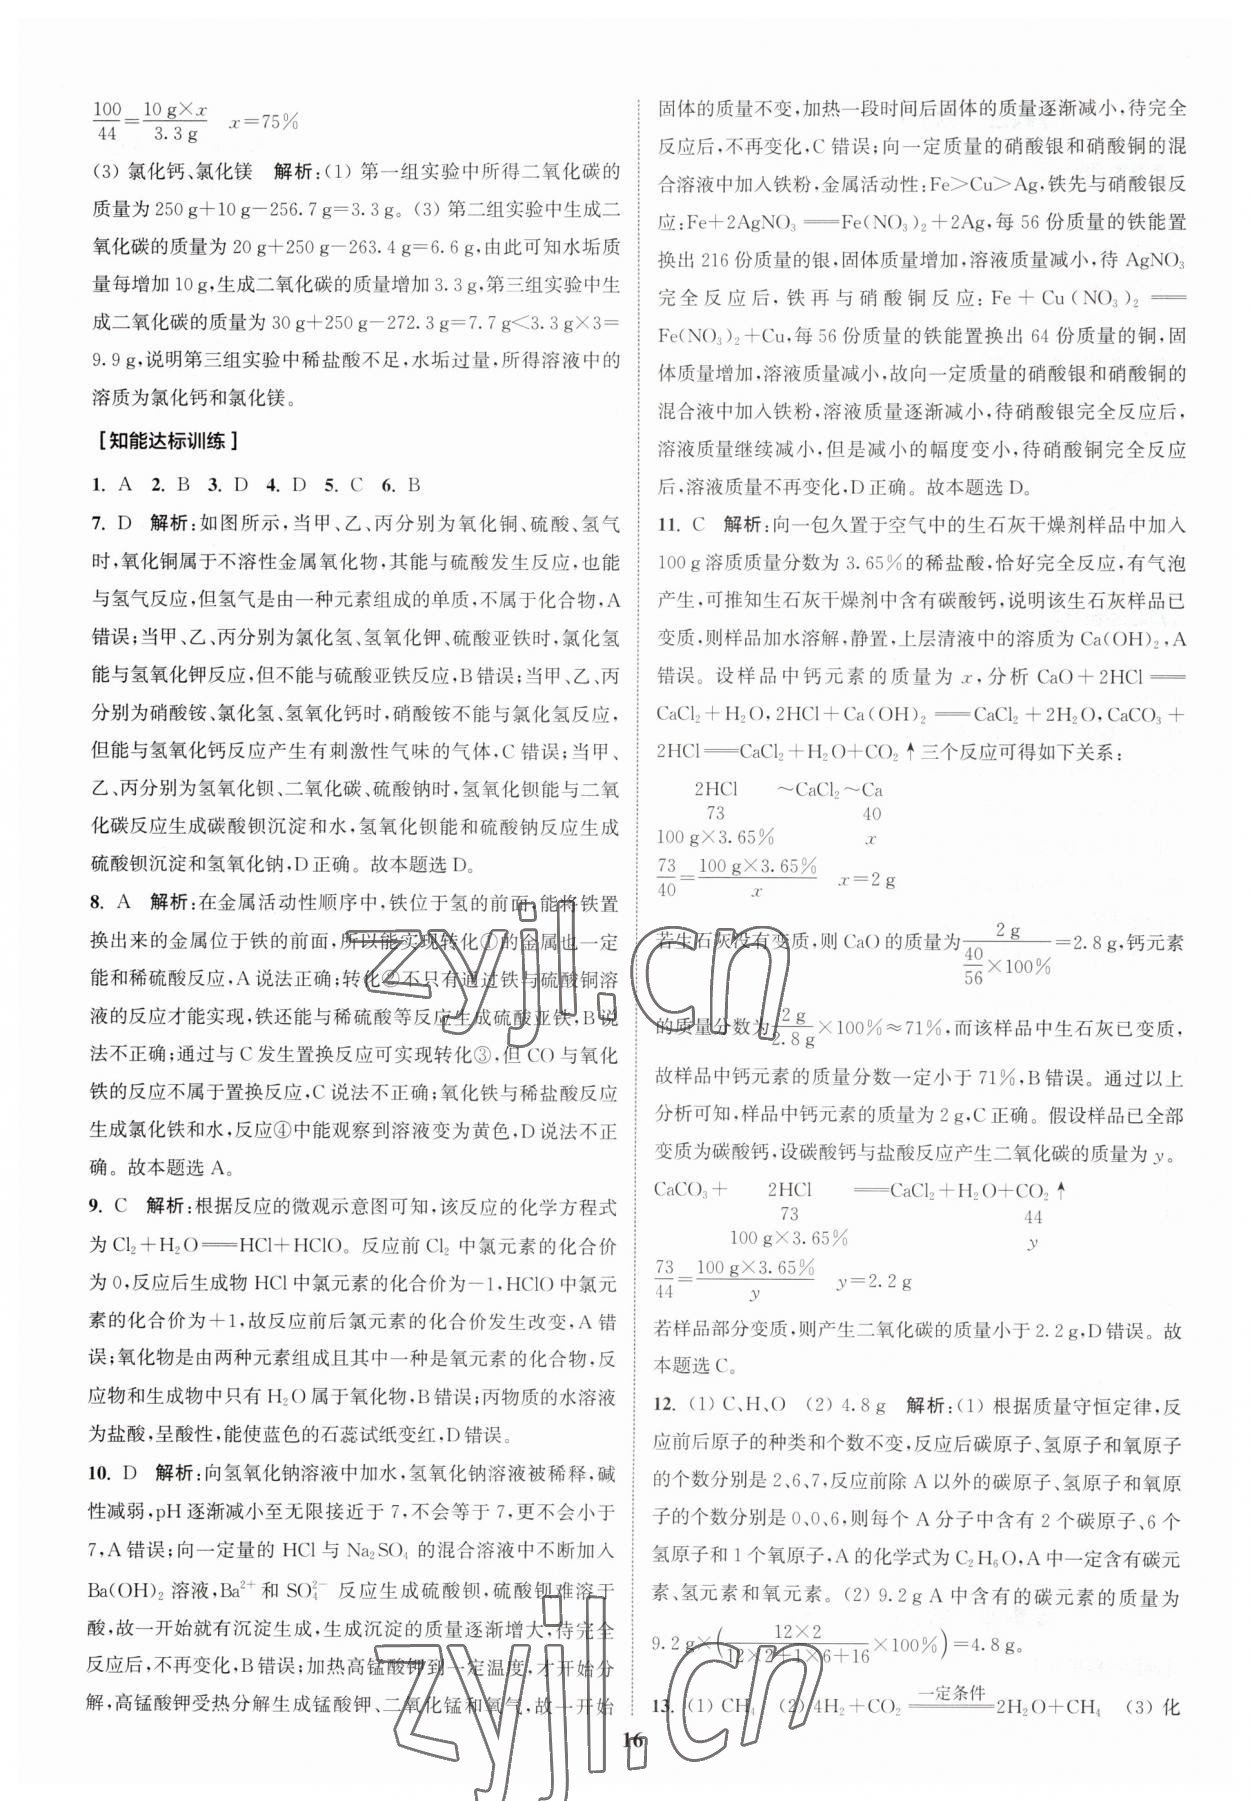 100/44=10 g×x/3.3 g  x=75%
(3) 氯化钙、氯化镁  解析:(1) 第一组实验中所得二氧化碳的
质量为 250 g+10 g−256.7 g=3.3 g。(3) 第二组实验中生成二
氧化碳的质量为 20 g+250 g−263.4 g=6.6 g,由此可知水垢质
量每增加 10 g,生成二氧化碳的质量增加 3.3 g,第三组实验中生
成二氧化碳的质量为 30 g+250 g−272.3 g=7.7 g<3.3 g×3=
9.9 g,说明第三组实验中稀盐酸不足,水垢过量,所得溶液中的
溶质为氯化钙和氯化镁。
[知能达标训练]
1. A  2. B  3. D  4. D  5. C  6. B
7. D  解析:如图所示,当甲、乙、丙分别为氧化铜、硫酸、氢气
时,氧化铜属于不溶性金属氧化物,其能与硫酸发生反应,也能
与氢气反应,但氢气是由一种元素组成的单质,不属于化合物,A
错误;当甲、乙、丙分别为氯化氢、氢氧化钾、硫酸亚铁时,氯化氢
能与氢氧化钾反应,但不能与硫酸亚铁反应,B错误;当甲、乙、丙
分别为硝酸铵、氯化氢、氢氧化钙时,硝酸铵不能与氯化氢反应,
但能与氢氧化钙反应产生有刺激性气味的气体,C 错误;当甲、
乙、丙分别为氢氧化钡、二氧化碳、硫酸钠时,氢氧化钡能与二氧
化碳反应生成碳酸钡沉淀和水,氢氧化钡能和硫酸钠反应生成
硫酸钡沉淀和氢氧化钠,D正确。故本题选 D。
8. A  解析:在金属活动性顺序中,铁位于氢的前面,能将铁置
换出来的金属位于铁的前面,所以能实现转化①的金属也一定
能和稀硫酸反应,A说法正确;转化②不只有通过铁与硫酸铜溶
液的反应才能实现,铁还能与稀硫酸等反应生成硫酸亚铁,B说
法不正确;通过与 C 发生置换反应可实现转化③,但 CO 与氧化
铁的反应不属于置换反应,C 说法不正确;氧化铁与稀盐酸反应
生成氯化铁和水,反应④中能观察到溶液变为黄色,D说法不正
确。故本题选 A。
9. C  解析:根据反应的微观示意图可知,该反应的化学方程式
为 Cl₂+H₂O══HCl+HClO。反应前 Cl₂ 中氯元素的化合价
为 0,反应后生成物 HCl 中氯元素的化合价为−1,HClO 中氯元
素的化合价为+1,故反应前后氯元素的化合价发生改变,A 错
误;氧化物是由两种元素组成且其中一种是氧元素的化合物,反
应物和生成物中只有 H₂O 属于氧化物,B错误;丙物质的水溶液
为盐酸,呈酸性,能使蓝色的石蕊试纸变红,D错误。
10. D  解析:向氢氧化钠溶液中加水,氢氧化钠溶液被稀释,碱
性减弱,pH逐渐减小至无限接近于 7,不会等于 7,更不会小于
7,A错误;向一定量的 HCl 与 Na₂SO₄ 的混合溶液中不断加入
Ba(OH)₂ 溶液,Ba²⁺ 和 SO₄²⁻ 反应生成硫酸钡,硫酸钡难溶于
酸,故一开始就有沉淀生成,生成沉淀的质量逐渐增大,待完全
反应后,不再变化,B 错误;加热高锰酸钾到一定温度,才开始分
解,高锰酸钾受热分解生成锰酸钾、二氧化锰和氧气,故一开始
固体的质量不变,加热一段时间后固体的质量逐渐减小,待完全
反应后,不再变化,C 错误;向一定质量的硝酸银和硝酸铜的混
合溶液中加入铁粉,金属活动性:Fe>Cu>Ag,铁先与硝酸银反
应:Fe+2AgNO₃══Fe(NO₃)₂+2Ag,每 56 份质量的铁能置
换出 216 份质量的银,固体质量增加,溶液质量减小,待 AgNO₃
完全反应后,铁再与硝酸铜反应:Fe+Cu(NO₃)₂══
Fe(NO₃)₂+Cu,每 56 份质量的铁能置换出 64 份质量的铜,固
体质量增加,溶液质量减小,故向一定质量的硝酸银和硝酸铜的
混合液中加入铁粉,溶液质量逐渐减小,待硝酸银完全反应后,
溶液质量继续减小,但是减小的幅度变小,待硝酸铜完全反应
后,溶液质量不再变化,D正确。故本题选 D。
11. C  解析:向一包久置于空气中的生石灰干燥剂样品中加入
100 g溶质质量分数为 3.65%的稀盐酸,恰好完全反应,有气泡
产生,可推知生石灰干燥剂中含有碳酸钙,说明该生石灰样品已
变质,则样品加水溶解,静置,上层清液中的溶质为 Ca(OH)₂,A
错误。设样品中钙元素的质量为 x,分析 CaO+2HCl══
CaCl₂+H₂O,2HCl+Ca(OH)₂══CaCl₂+2H₂O,CaCO₃+
2HCl══CaCl₂+H₂O+CO₂↑三个反应可得如下关系:
2HCl ~CaCl₂~Ca
73  40
100 g×3.65%  x
73/40=100 g×3.65%/x  x=2 g
若生石灰没有变质,则 CaO 的质量为 2 g/(40/56×100%)=2.8 g,钙元素
的质量分数为 2 g/2.8 g×100%≈71%,而该样品中生石灰已变质,
故样品中钙元素的质量分数一定小于 71%,B错误。通过以上
分析可知,样品中钙元素的质量为 2 g,C 正确。假设样品已全部
变质为碳酸钙,设碳酸钙与盐酸反应产生二氧化碳的质量为 y。
CaCO₃+ 2HCl ══CaCl₂+H₂O+CO₂↑
73  44
100 g×3.65%  y
73/44=100 g×3.65%/y  y=2.2 g
若样品部分变质,则产生二氧化碳的质量小于 2.2 g,D错误。故
本题选 C。
12. (1) C、H、O  (2) 4.8 g  解析:(1) 根据质量守恒定律,反
应前后原子的种类和个数不变,反应后碳原子、氢原子和氧原子
的个数分别是 2、6、7,反应前除 A 以外的碳原子、氢原子和氧原
子的个数分别是 0、0、6,则每个 A 分子中含有 2 个碳原子、6 个
氢原子和 1 个氧原子,A 的化学式为 C₂H₆O,A 中一定含有碳元
素、氢元素和氧元素。(2) 9.2 g A 中含有的碳元素的质量为
9.2 g×(12×2/(12×2+1×6+16)×100%)=4.8 g。
13. (1) CH₄  (2) 4H₂+CO₂ ══一定条件══ 2H₂O+CH₄  (3) 化
16
zyjl.cn
zyjl.cn